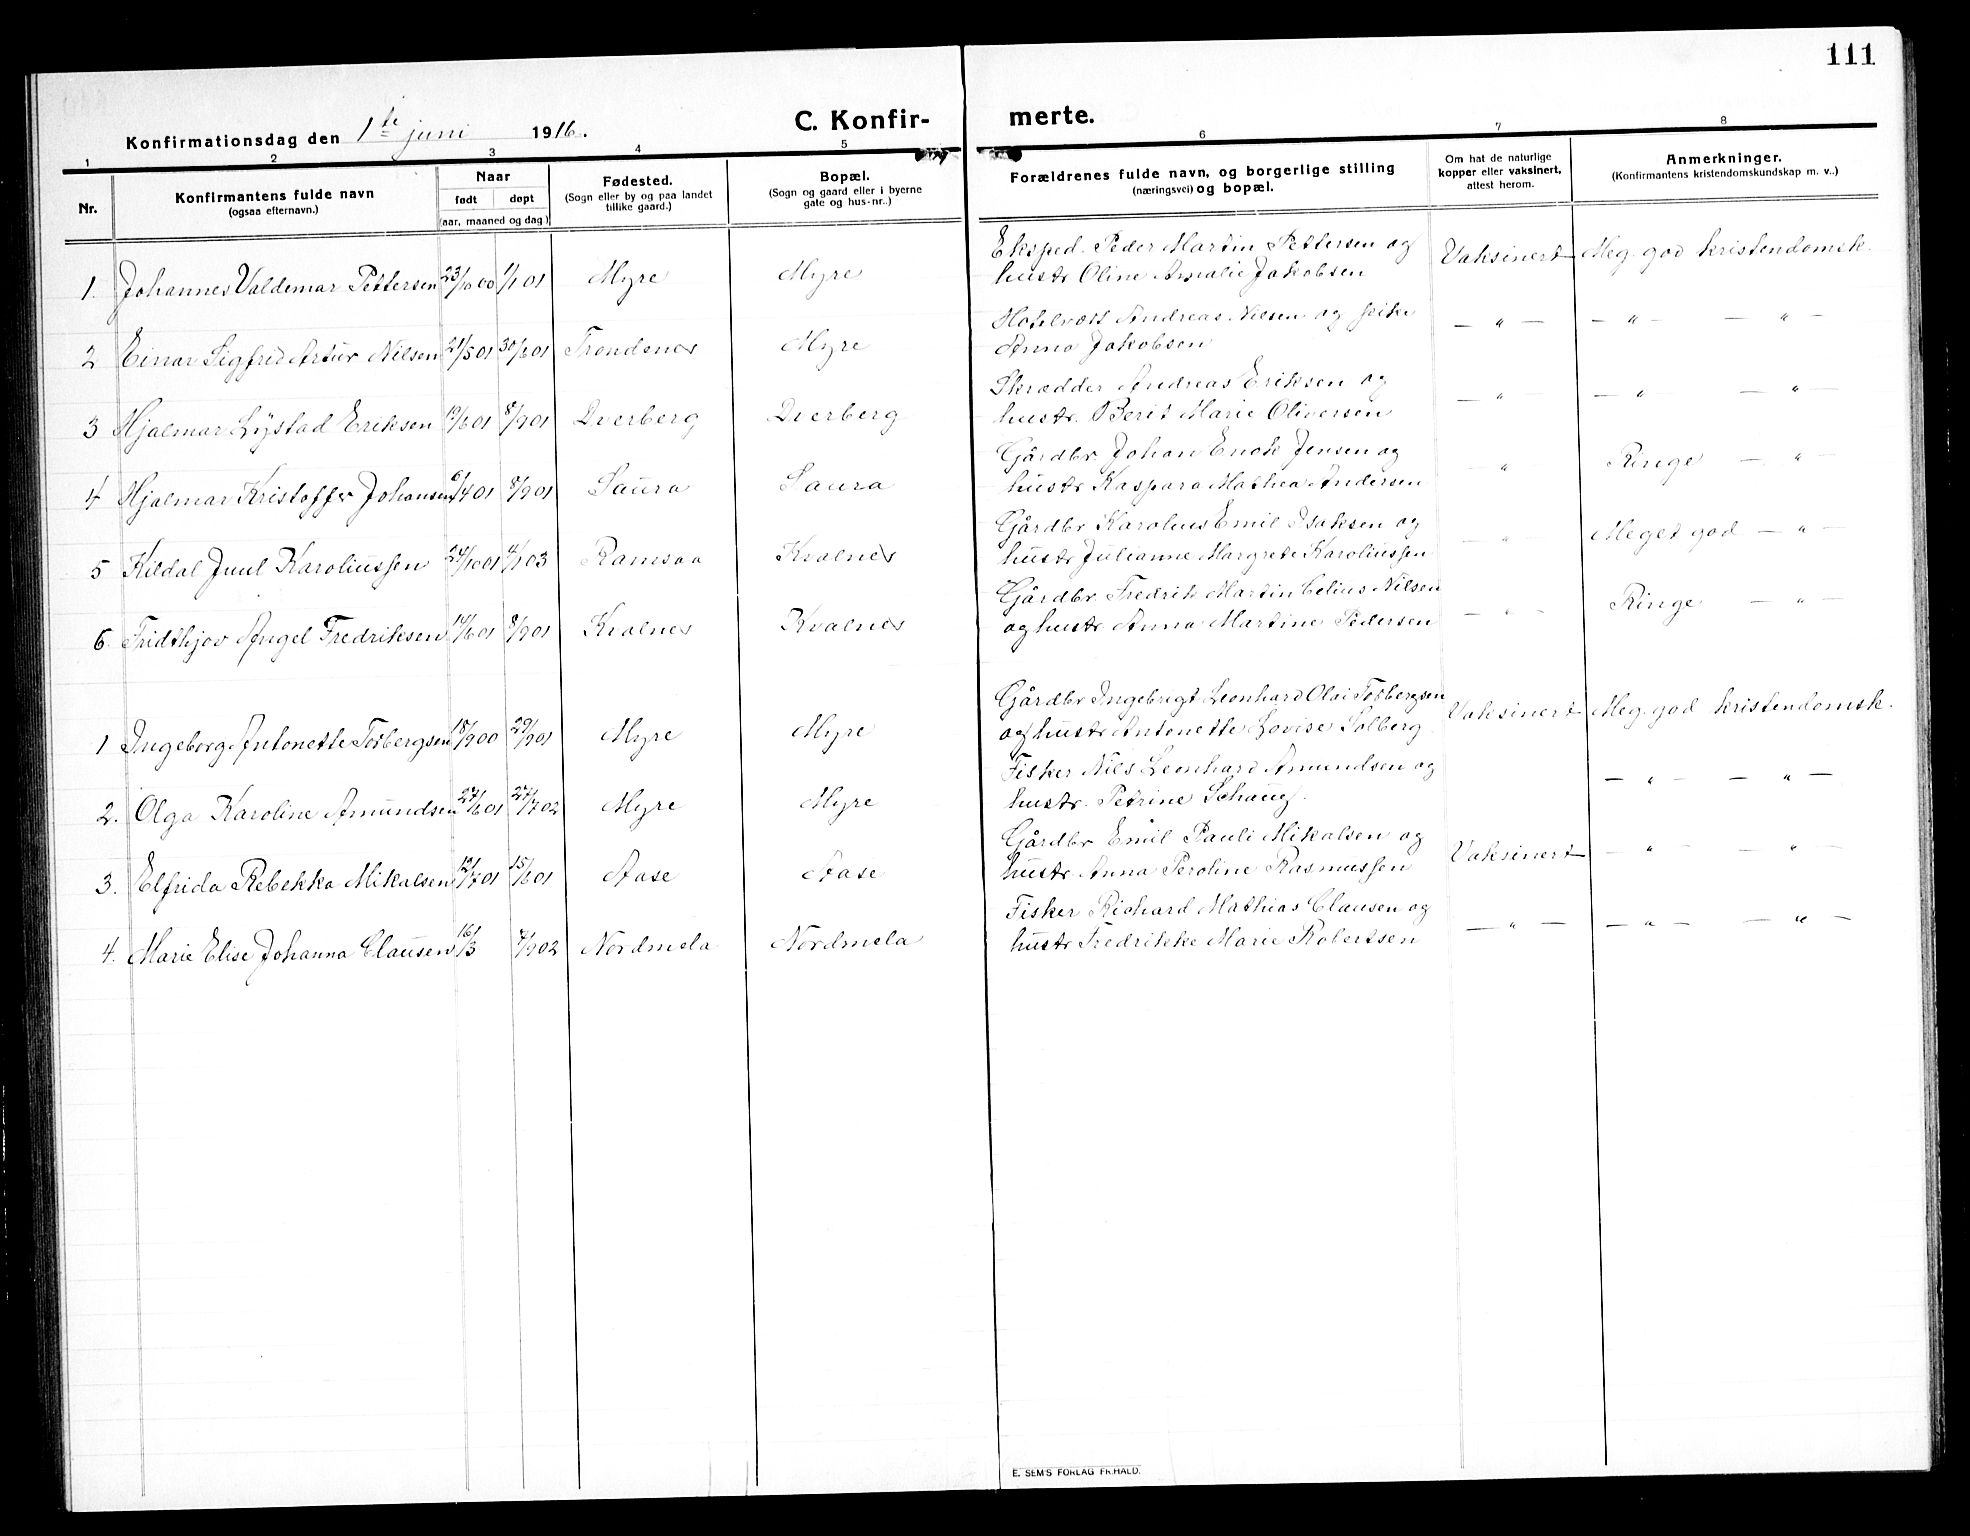 111
Konfirmationsdag den 1ste juni 1916. C. Konfir- merte.
1 2 3 4 5 6 7 8
Nr. Konfirmantens fulde navn (ogsaa efternavn.) Naar født døpt (aar, maaned og dag.) Fødested. (Sogn eller by og paa landet tillike gaard.) Bopæl. (Sogn og gaard eller i byerne gate og hus-nr..) Forældrenes fulde navn, og borgerlige stilling (næringsvei) og bopæl. Om hat de naturlige kopper eller vaksinert, attest herom. Anmerkninger. (Konfirmantens kristendomskundskap m. v..)
1. Johannes Valdemar Pettersen 23/10 00 1/1 01 Myre Myre Eksped. Peder Martin Pettersen og hustr Oline Amalie Jakobsen Vaksinert Meg. god kristendomsk.
2 Einar Sigfred Artur Nilsen 21/5 01 30/6 01 Trondenes Myre Hotelvært Andreas Nilsen og pike Anna Jakobsen — " — — " — — " —
3 Hjalmar Lystad Eriksen 19/6 01 8/9 01 Dverberg Dverberg Skrædder Andreas Eriksen og hustr. Berit Marie Oliversen — " — — " — — " —
4 Hjalmar Kristoffer Johansen 6/4 01 8/9 01 Saura Saura Gårdbr Johan Enok Jensen og hustr Kaspara Mathea Andersen — " — Ringe — " —
5 Kildal Juul Karoliussen 24/10 01 4/1 03 Ramsaa Kvalnes Gårdbr Karolius Emil Isaksen og hustr Julianne Margrete Karoliussen — " — Meget god — " —
6. Fridthjov Angel Fredriksen 14/6 01 8/9 01 Kvalnes Kvalnes Gårdbr Fredrik Martin Celius Nilsen og hustr Anna Martine Pedersen — " — Ringe — " —
1 Ingeborg Antonette Torbergsen 18/9 00 29/9 01 Myre Myre Gårdbr Ingebrigt Leonhard Olai Torbergsen og hustr Antonette Lovise Solberg. Vaksinert Meg. god kristendomsk.
2. Olga Karoline Amundsen 27/6 01 27/7 02 Myre Myre Fisker Nils Leonhard Amundsen og hustr. Petrine Schaug. — " — — " —
3. Elfrida Rebekka Mikalsen 12/7 01 15/6 01 Aase Aase Gårdbr Emil Pauli Mikalsen og hustr Anna Peroline Rasmussen Vaksinert — " — — " —
4. Marie Elise Johanna Clausen 16/3 7/9 02 Nordmela Nordmela Fisker Richard Mathias Clausen og hustr Fredrikke Marie Robertsen — " — — " — — " —
E. SEM'S FORLAG FR.HALD.